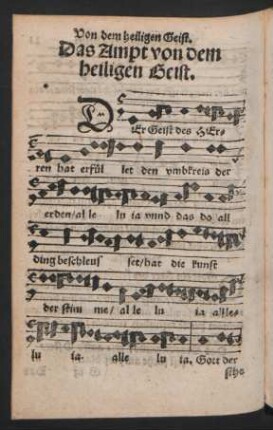 Von dem heiligen Geist.
Das Ampt von dem
heiligen Geist.
DEr Geist des HErs-
ren hat erfül let den vmbkreis der
erden/al le lu ia vnnd das do all
ding beschleus set/hat die kunst
der stim me/ al le lu ia alles-
lu ia- alle lu ia. Gott der
sihe